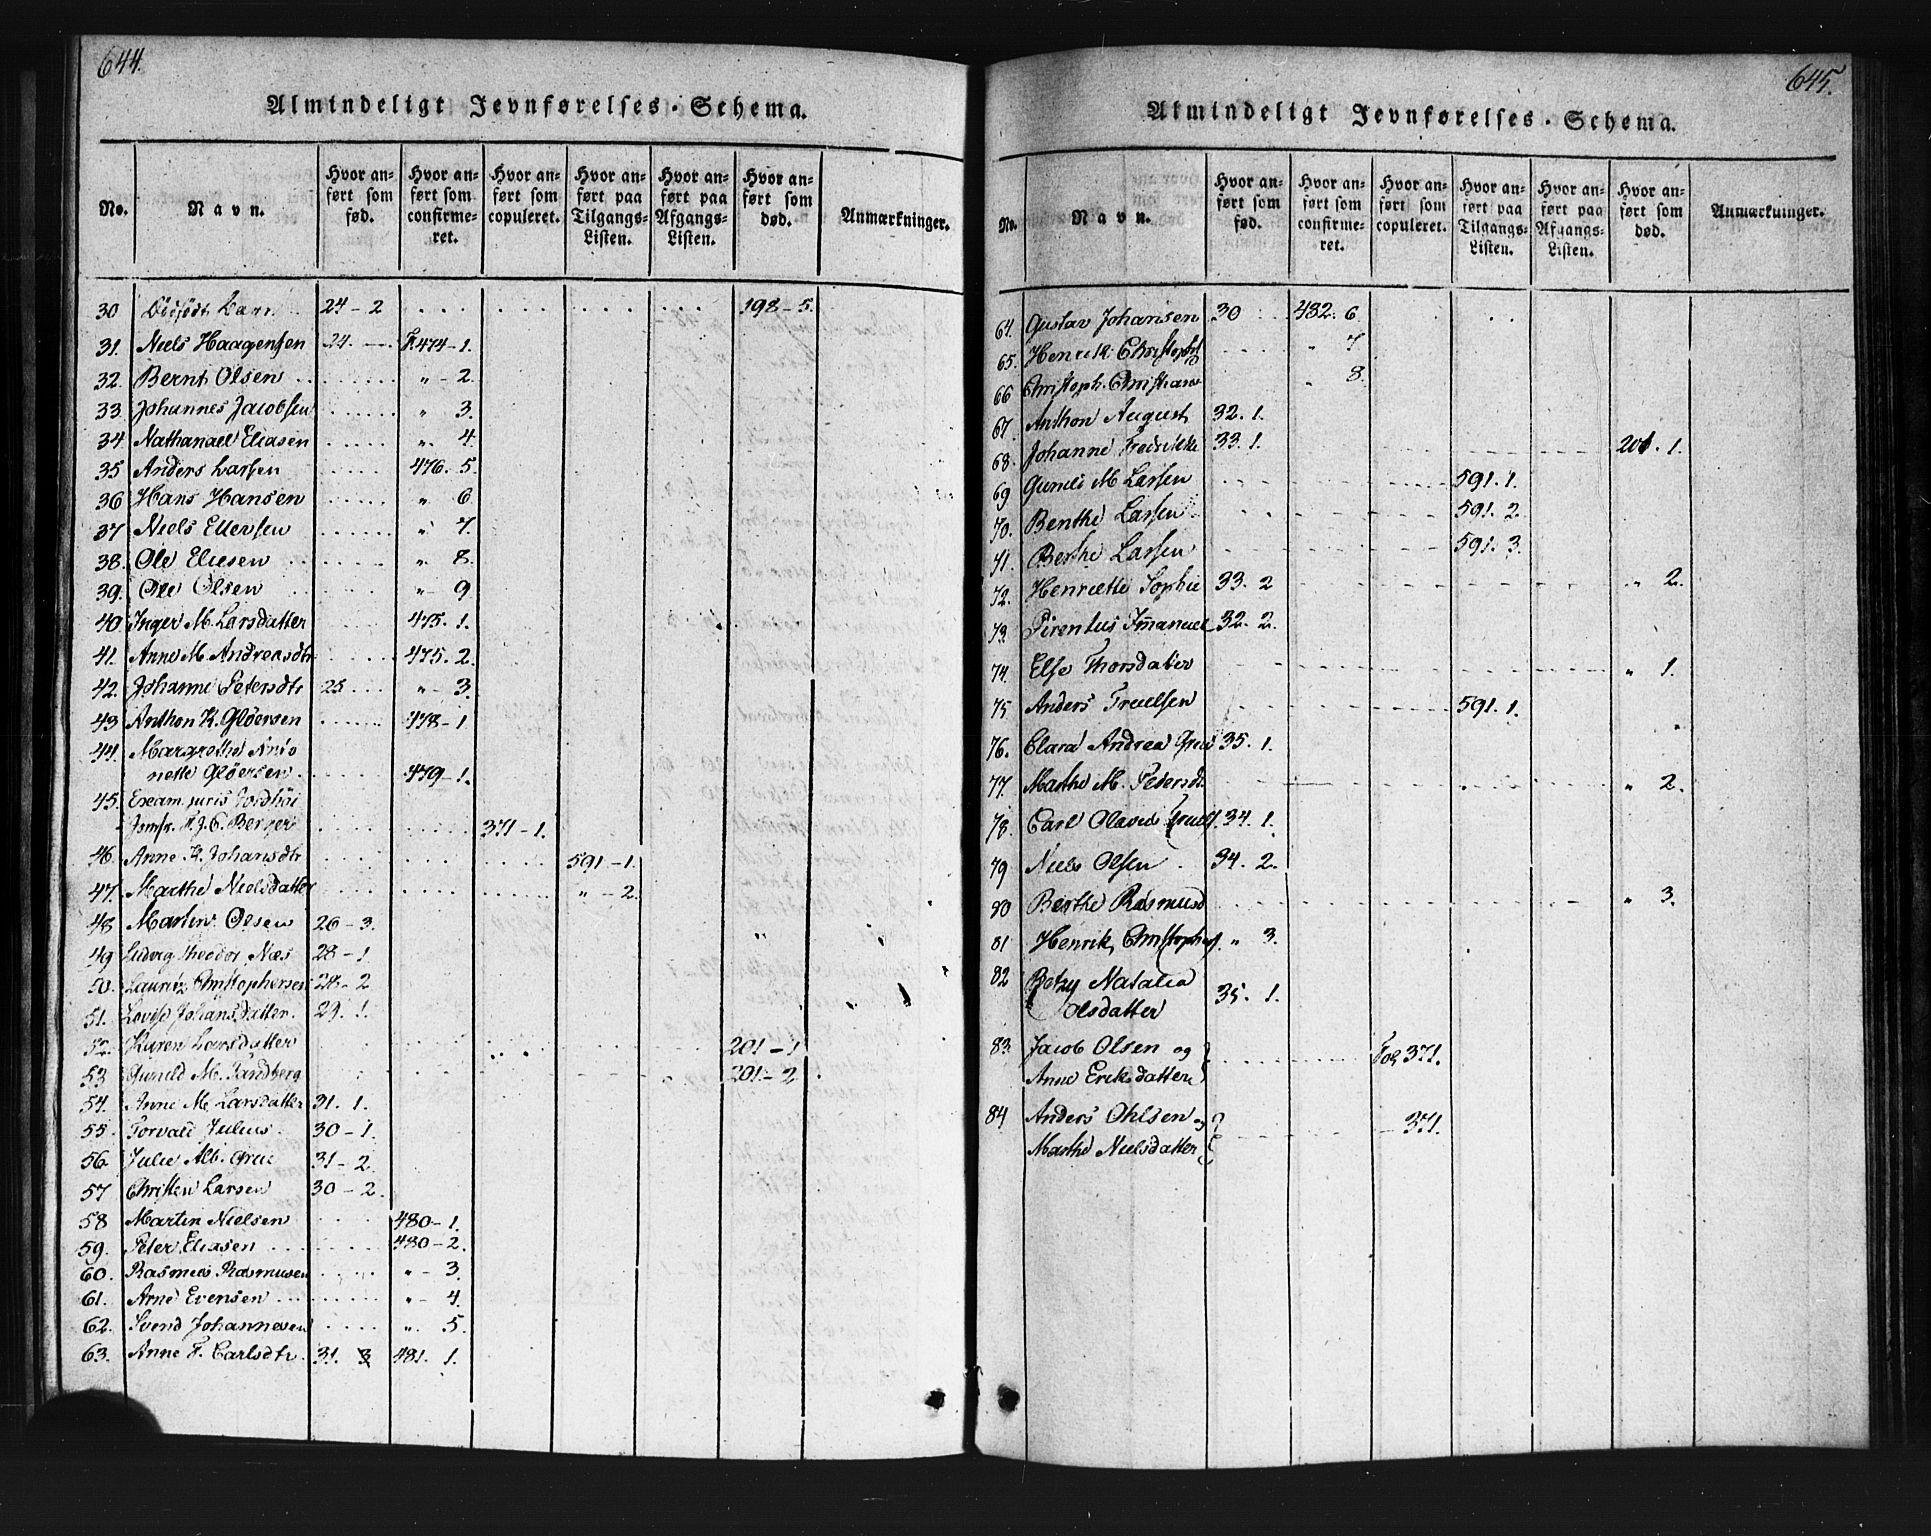 644.
Almindeligt Jevnførelses-Schema.
No. Navn. Hvor anført som fød. Hvor anført som confirmeret. Hvor anført som copuleret. Hvor anført paa Tilgangs-Listen. Hvor anført paa Afgangs-Listen. Hvor anført som død. Anmærkninger.
30 Dødfødt Barn 24-2 198-5.
31. Niels Haagensen 24. F. 474-1.
32. Bernt Olsen „ - 2.
33. Johannes Jacobsen „ 3.
34. Nathanael Eliasen „ 4.
35 Anders Larsen 476. 5.
36 Hans Hansen „ 6
37 Niels Ellevsen „ 7.
38. Ole Eliesen „ 8.
39. Ole Olsen „ 9
40. Inger M. Larsdatter 475. 1.
41. Anne M. Andreasdtr 475. 2.
42. Johanne Petersdtr 25 „ - 3.
43 Anthon K. Gløersen 478-1
44. Margrethe Anto
nette Gløersen 479-1.
45. Exam. juris Jordhøi
Jomfr. F. J. C. Berger 371-1.
46. Anne K. Johansdtr 591-1.
47. Marthe Nielsdatter „ - 2.
48 Martin Olsen 26-3.
49 Ludvig Theodor Næs 28-1.
50. Lauritz Christophersen 28-2
51. Lovise Johansdatter. 29. 1.
52. Karen Larsdatter 201-1
53 Gunild M. Sandberg 201-2
54. Anne M. Larsdatter 31. 1.
55. Torvald Julius. 30-1.
56. Julie Alb. Grue 31-2.
57 Christen Larsen 30-2.
58 Martin Nielsen 480-1.
59. Peter Eliasen 480-2.
60. Rasmus Rasmusen „ - 3.
61. Arne Evensen „ - 4.
62. Svend Johannesen „ 5.
63. Anne F. Carlsdtr. 31. 3 481. 1.
645.
Almindeligt Jevnførelses-Schema.
No. Navn. Hvor anført som fød. Hvor anført som confirmeret. Hvor anført som copuleret. Hvor anført paa Tilgangs-Listen. Hvor anført paa Afgangs-Listen. Hvor anført som død. Anmærkninger.
64. Gustav Johansen 30 482. 6
65. Henrik Christophs „ 7
66 Christoph. Christians „ 8.
67. Anthon August 32. 1.
68. Johanne Fredrikke 33. 1. 201. 1.
69 Guneli M Larsen 591. 1.
70. Benthe Larsen 591. 2.
71. Berthe Larsen 591. 3.
72. Henriette Sophie 33. 2 „ 2.
73. Pirentus Imanuel 32. 2.
74. Else Thorsdatter „ 1.
75 Anders Truelsen 591. 1.
76. Clara Andrea Grue 35. 1.
77. Marthe M. Petersdt. „ 2.
78. Carl Olavus Truels. 34. 1.
79 Niels Olsen 34. 2.
80 Berthe Rasmusd „ 3.
81 Henrik Christophers. „ 3.
82 Betzy Natalia
Olsdatter 35. 1.
83 Jacob Olsen og
Anne Eriksdatter Fol 371.
84 Anders Ohlsen og
Marthe Nielsdatter 371.